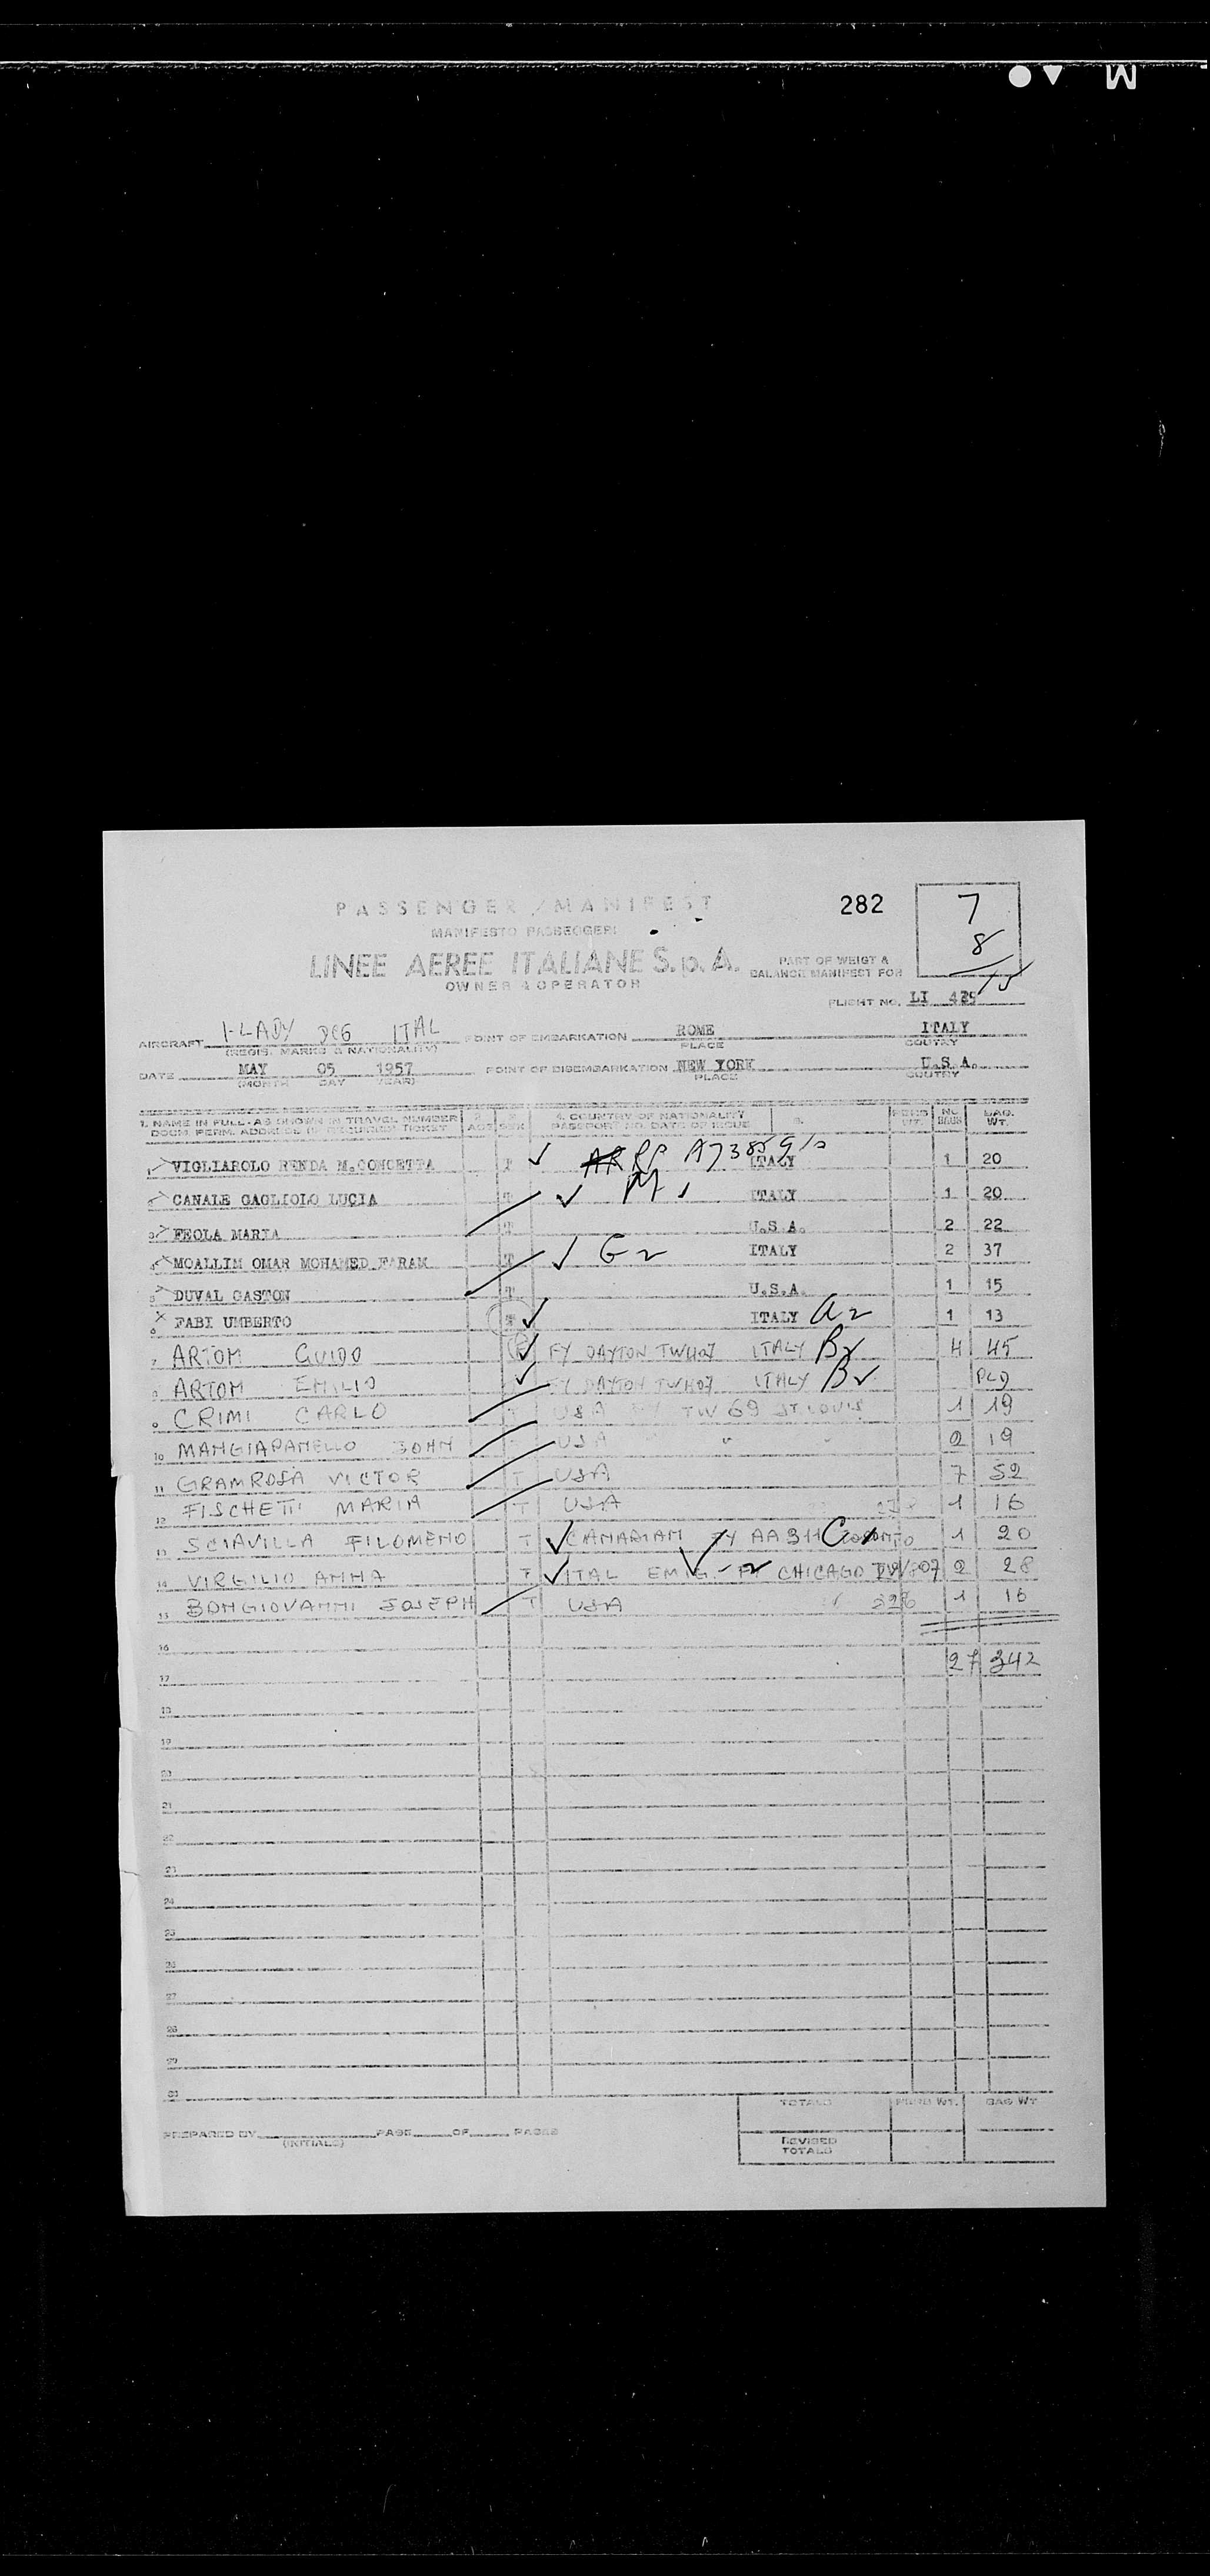 M
PASSENGER / MANIFEST
282
7
8
15
MANIFESTO PASSEGGERI
LINEE AEREE ITALIANE S.p.A.
OWNER & OPERATOR
PART OF WEIGT &
BALANCE MANIFEST FOR
FLIGHT NO. LI 425
AIRCRAFT I-LADY DC6 ITAL POINT OF EMBARKATION ROME ITALY
(REGIS. MARKS & NATIONALITY) PLACE COUTRY
DATE MAY 05 1957 POINT OF DISEMBARKATION NEW YORK U.S.A.
(MONTH DAY YEAR) PLACE COUTRY
1. NAME IN FULL-AS SHOWN IN TRAVEL NUMBER 2. AGE 3. SEX 4. COUNTRY OF NATIONALITY 5. PERS WT. NO. BAGS BAG. WT.
DOCM. PERM. ADDRESS IN TICKET PASSPORT NO. DATE OF ISSUE
1 VIGLIAROLO RENDA M.CONCETTA T RP ITALY 1 20
2 CANALE GAGLIOLO LUCIA T ITALY 1 20
3 FEOLA MARIA T U.S.A. 2 22
4 MOALLIM OMAR MOHAMED FARAM T G 2 ITALY 2 37
5 DUVAL GASTON T U.S.A. 1 15
6 FABI UMBERTO ITALY 1 13
7 ARTOM GUIDO FY DAYTON TW407 ITALY B 4 45
8 ARTOM EMILIO FY DAYTON TW407 ITALY B PLD
9 CRIMI CARLO T USA TW 69 ST. LOUIS 1 19
10 MANGIAPANELLO JOHN USA " " " 2 19
11 GRAMROSA VICTOR T USA 7 52
12 FISCHETTI MARIA T USA 1 16
13 SCIAVILLA FILOMENO T CANADIAN FY AA 311 1 20
14 VIRGILIO ANNA T ITAL EMIG. FY CHICAGO 2 28
15 BONGIOVANNI JOSEPH T USA 1 16
16
27 342
17
18
19
20
21
22
23
24
25
26
27
28
29
30
TOTALS PERS WT. BAG WT
PREPARED BY PAGE OF PAGES
(INITIALS)
REVISED
TOTALS